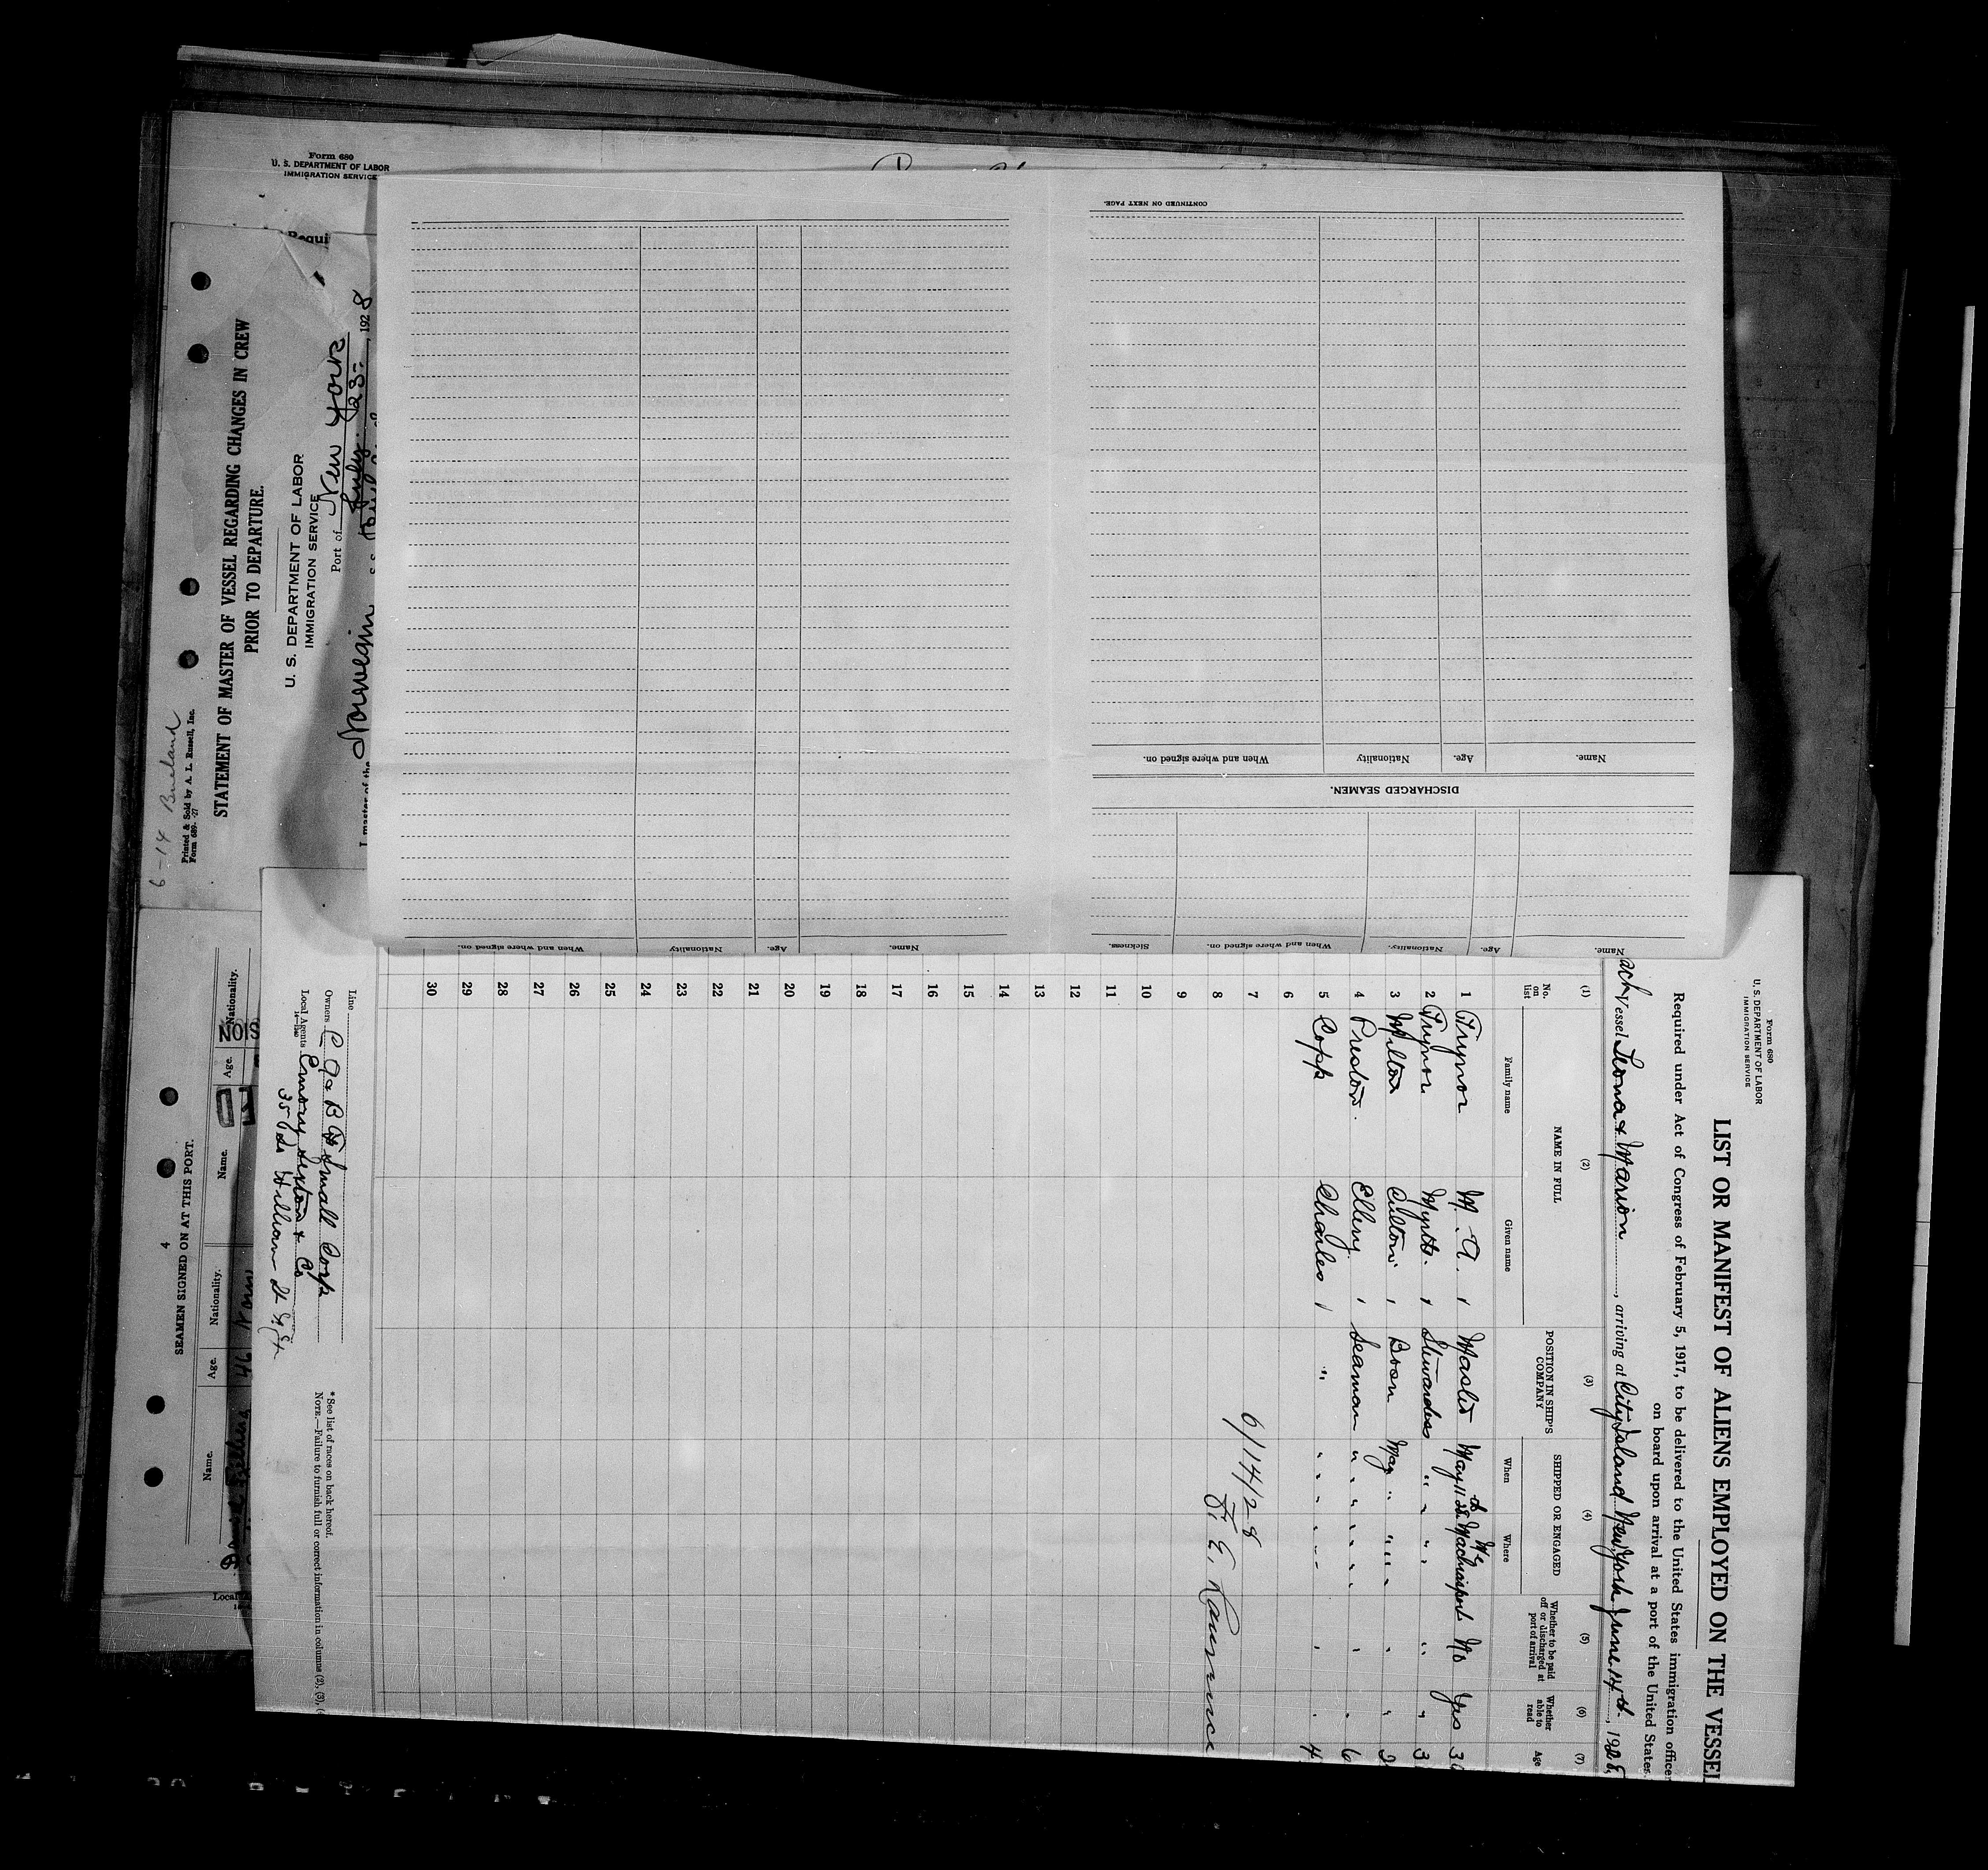 Form 680
U. S. DEPARTMENT OF LABOR
IMMIGRATION SERVICE
6-14
Printed & Sold by A. L. Russell, Inc.
Form 689- -27
STATEMENT OF MASTER OF VESSEL REGARDING CHANGES IN CREW
PRIOR TO DEPARTURE.
U. S. DEPARTMENT OF LABOR
IMMIGRATION SERVICE
Port of New York
July 23- 1928
Norwegian
CONTINUED ON NEXT PAGE.
Name. Age. Nationality When and where signed on.
DISCHARGED SEAMEN.
Name. Age. Nationality. When and where signed on. Sickness.
Name. Age. Nationality When and where signed on.
4
SEAMEN SIGNED ON AT THIS PORT.
Name. Age. Nationality. Name. Age. Nationality.
46
Form 680
U. S. DEPARTMENT OF LABOR
IMMIGRATION SERVICE
LIST OR MANIFEST OF ALIENS EMPLOYED ON THE VESSEL
Required under Act of Congress of February 5, 1917, to be delivered to the United States immigration officer
on board upon arrival at a port of the United States
Vessel Leona & Marion, arriving at City Island New York June 14th, 1928
(1) (2) (3) (4) (5) (6) (7)
No. on list NAME IN FULL POSITION IN SHIP'S COMPANY SHIPPED OR ENGAGED Whether to be paid off or discharged at port of arrival Whether able to read Age
Family name Given name When Where
1 Trynor M. A Master May 11 28 Machiasport Me No Yes
2 Trynor Stewardess " " " " "
3 Milton Bosn May " " " "
4 Preston Ellery Seaman " " " "
5 Copp Charles " " " " "
6
7
8
9
10
11
12
13
14
15
16
17
18
19
20
21
22
23
24
25
26
27
28
29
30
6/14/28
F. E. Lawrence
Line
Owners Small Corp
Local Agents Emory Sexton & Co
35 William St
* See list of races on back hereof.
NOTE.—Failure to furnish full or correct information in columns (2), (3),